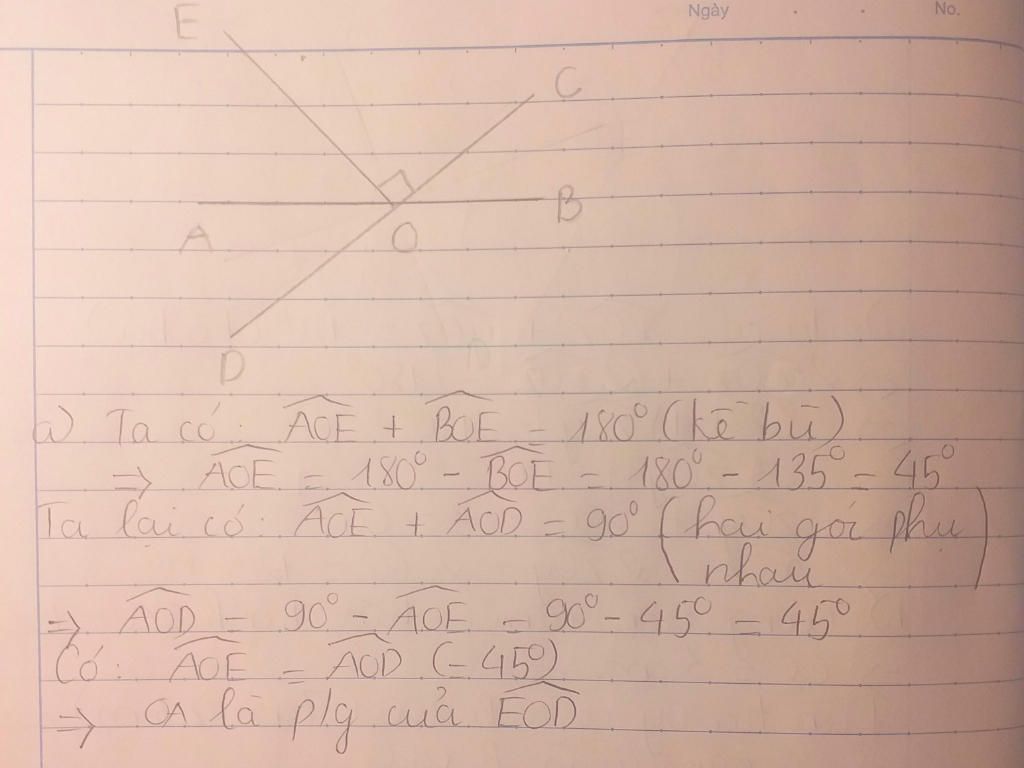 Ngày . . No.
E
C
A O B
D
a) Ta có: AOE + BOE = 180° (kề bù)
⇒ AOE = 180° - BOE = 180° - 135° = 45°
Ta lại có: AOE + AOD = 90° (hai góc phụ
nhau)
⇒ AOD = 90° - AOE = 90° - 45° = 45°
Có: AOE = AOD (=45°)
⇒ OA là p/g của EOD